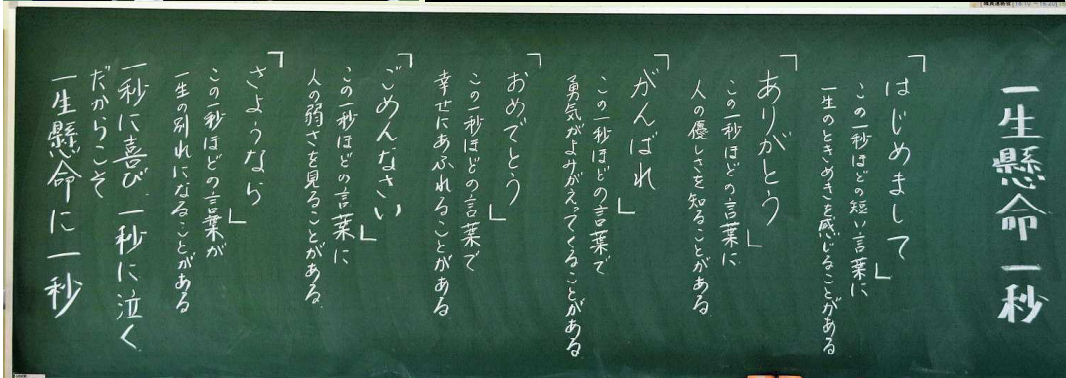 一生懸命 一秒
「はじめまして」
この一秒ほどの短い言葉に
一生のときめきを感じることがある
「ありがとう」
この一秒ほどの言葉に
人の優しさを知ることがある
「がんばれ」
この一秒ほどの言葉で
勇気がよみがえってくることがある
「おめでとう」
この一秒ほどの言葉で
幸せにあふれることがある
「ごめんなさい」
この一秒ほどの言葉に
人の弱さを見ることがある
「さようなら」
この一秒ほどの言葉が
一生の別れになることがある
一秒に喜び、一秒に泣く
だからこそ
一生懸命に一秒